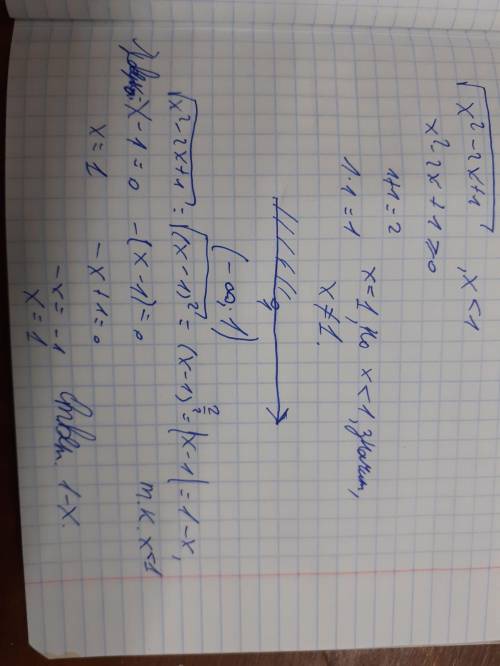 √x²-2x+1 , x<1
x²-2x+1≥0
1+1=2
1·1=1 x=1, но x<1, значит,
x≠1.
1
(-∞; 1)
√x²-2x+1 = √(x-1)² = (x-1)^2/2 = |x-1| = 1-x,
т.к. x<1
x-1=0 -(x-1)=0
x=1 -x+1=0
-x=-1
x=1
Ответ. 1-x.